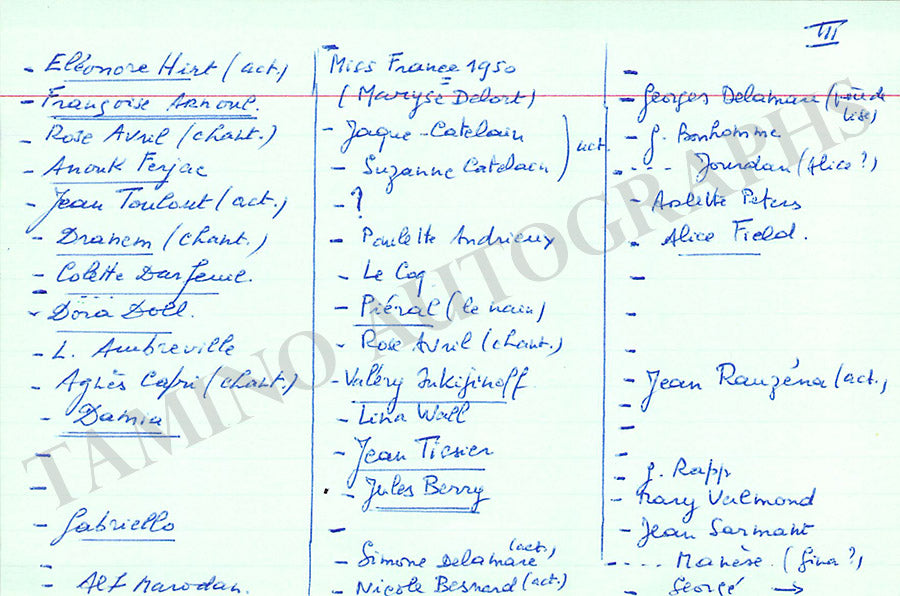 III
- Eléonore Hirt (act.)
- Françoise Arnoul.
- Rose Avril (chant.)
- Anouk Ferjac
- Jean Toulout (act.)
- Dranem (chant.)
- Colette Darfeuil.
- Dora Doll.
- L. Ambreville
- Agnès Capri (chant.)
- Damia
-
-
- Gabriello
-
- Alf Marodan.
-
Miss France 1950
(Maryse Delort)
- Jaque-Catelain
- Suzanne Catelain ) act.
- ?
- Paulette Andrieux
- Le Coq
- Piéral (le nain)
- Rose Avril (chant.)
- Valéry Inkijinoff
- Lina Wall
- Jean Tissier
- Jules Berry
-
- Simone Delamare (act.)
- Nicole Besnard (act.)
-
- Georges Delamare (
- G. Bonhomme
- ... Jourdan (Alice ?)
- Arlette Peters
- Alice Field.
-
-
-
- Jean Rauzéna (act.,
-
-
-
- G. Rapp
- Mary Valmond
- Jean Sarment
- ... Manèse. (Gina ?)
- Georgé →
TAMINO AUTOGRAPHS